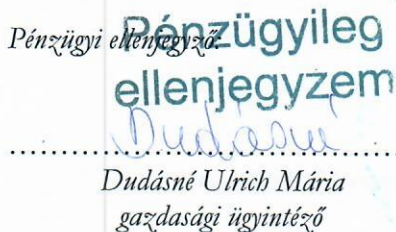 Pénzügyi ellenjegyző:
Pénzügyileg
ellenjegyzem
Dudásné
Dudásné Ulrich Mária
gazdasági ügyintéző